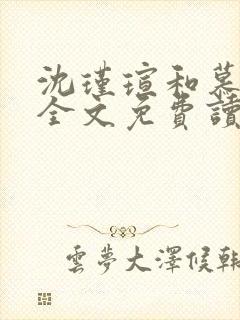 沈瑾瑄和慕
全文免費讀
雲夢大澤候韓